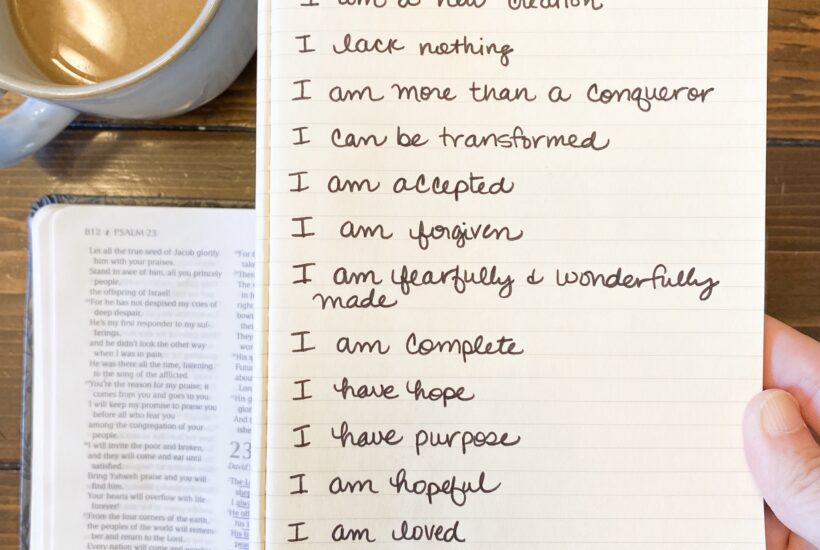 I am a new creation
I lack nothing
I am more than a conqueror
I can be transformed
I am accepted
I am forgiven
I am fearfully & wonderfully
made
I am complete
I have hope
I have purpose
I am hopeful
I am loved
812 PSALM 23
Let all the true seed of Jacob glorify
him with your praises.
Stand in awe of him, all you princely
people,
the offspring of Israel!
"For he has not despised my cries of
deep despair.
He's my first responder to my suf-
ferings,
and he didn't look the other way
when I was in pain.
He was there all the time, listening
to the song of the afflicted.
"You're the reason for my praise; it
comes from you and goes to you.
I will keep my promise to praise you
before all who fear you
among the congregation of your
people.
"I will invite the poor and broken,
and they will come and eat until
satisfied.
Bring Yahweh praise and you will
find him.
Your hearts will overflow with life
forever!
"From the four corners of the earth,
the peoples of the world will remem-
ber and return to the Lord.
Every nation will come and
23